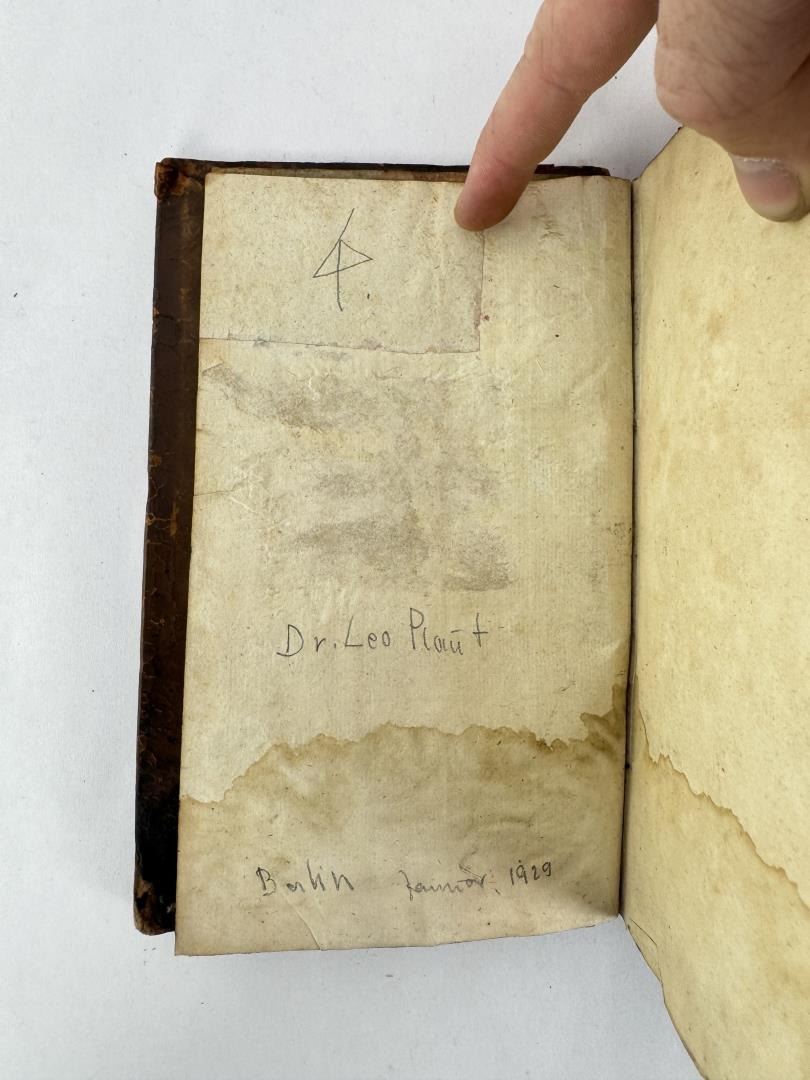 4.
Dr. Leo Plaut
Berlin Januar, 1929